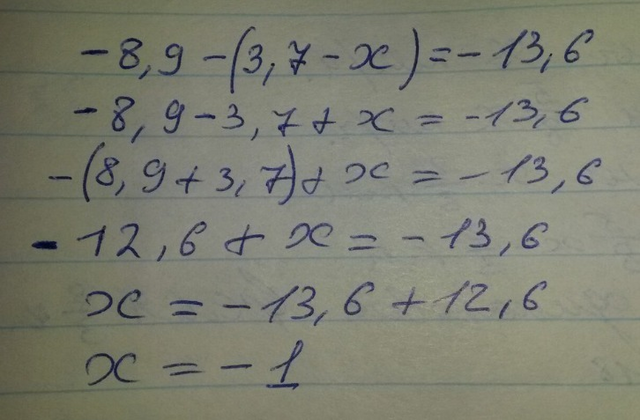 -8,9-(3,7-x)=-13,6
-8,9-3,7+x=-13,6
-(8,9+3,7)+x=-13,6
-12,6+x=-13,6
x=-13,6+12,6
x=-1